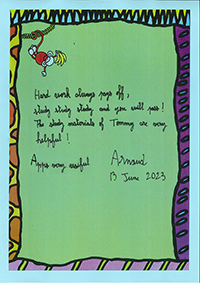 Hard work always pays off,
study study study and you will pass!
The study materials of Tommy are very
helpful!
Apps very usefful
Arnaud
13 June 2023